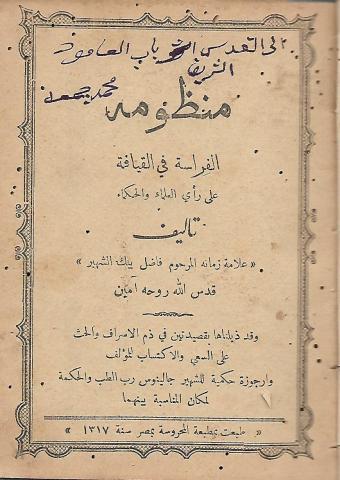 الى القدس باب العامود
الشريف
محمد
منظومه
الفراسة في القيافة
على رأي العلماء والحكماء
تأليف
« علامة زمانه المرحوم فاضل بيك الشهير »
قدس الله روحه امين
وقد ذيلناها بقصيدتين في ذم الاسراف والحث
على السعي والاكتساب للمؤلف
وارجوزة حكمية للشهير جالينوس رب الطب والحكمة
لمكان المناسبة بينهما
« طبعت بمطبعة المحروسة بمصر سنة ١٣١٧ »